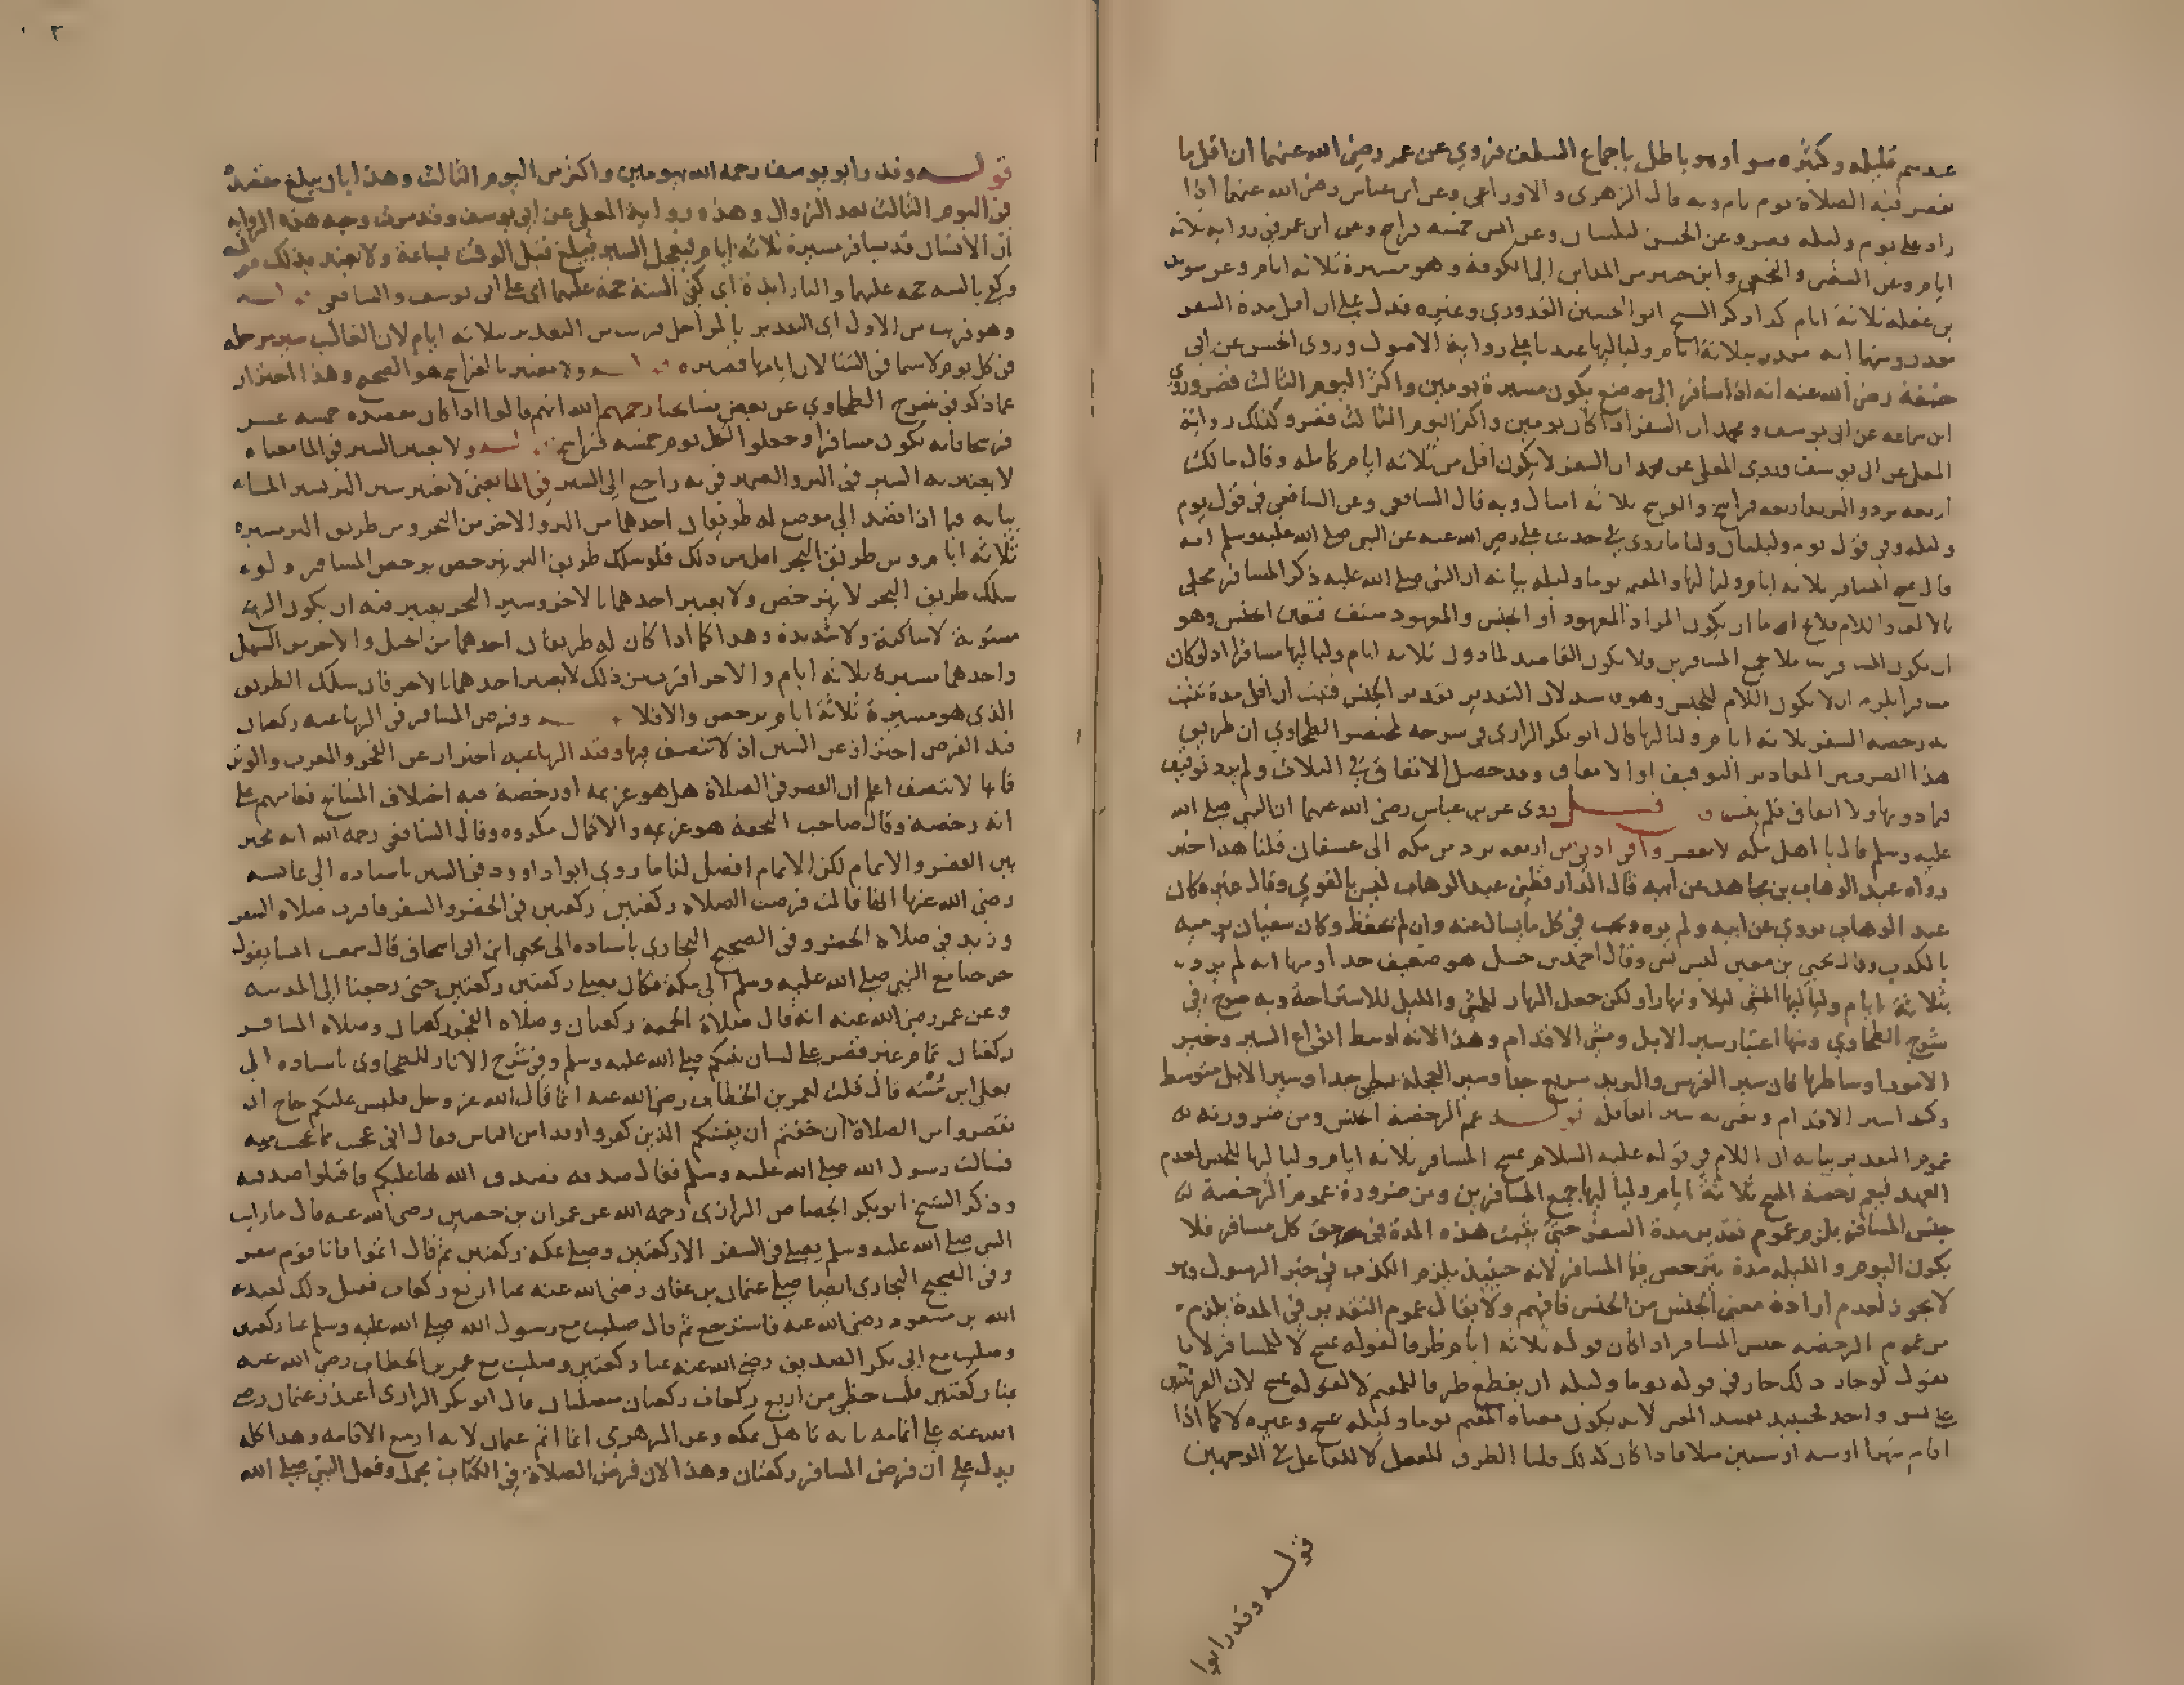 عندهم قليله وكثيره سواء وهو باطل باجماع السلف فروي عن عمر رضي الله عنهما ان اقل ما
تقصر فيه الصلاة يوم تام وبه قال الزهري والاوزاعي وعن ابن عباس رضي الله عنهما اذا
زاد على يوم وليله قصر وعن الحسن ليلتان وعن انس خمسة فراسخ وعن ابن عمر في رواية ثلاثة
ايام وعن الشعبي والنخعي وابن جبير من المداين الى الكوفة وهو مسيرة ثلاثة ايام وعن سويد
بن غفله ثلاثة ايام كذا ذكر الشيخ ابو الحسين القدوري وغيره فدل على ان اقل مدة السفر
مقدر ومنها انه مقدر بثلاثة ايام ولياليها عندنا على رواية الاصول وروى الحسن عن ابي
حنيفة رضي الله عنه انه اذا سافر الى موضع يكون مسيرة يومين واكثر اليوم الثالث قصر وروى
ابن سماعه عن ابي يوسف ومحمد ان السفر اذا كان يومين واكثر اليوم الثالث قصر وكذلك رواية
المعلى عن ابي يوسف وروى المعلى عن محمد ان السفر لا يكون اقل من ثلاثة ايام كامله وقال مالك
اربعه برد والبريد اربعه فراسخ والفرسخ ثلاثة اميال وبه قال الشافعي وعن الشافعي في قول يوم
وليله وفي قول يوم وليلتان ولنا ما روي في حديث علي رضي الله عنه عن النبي صلى الله عليه وسلم انه
قال يمسح المسافر ثلاثة ايام ولياليها والمقيم يوما وليله بيانه ان النبي صلى الله عليه ذكر المسافر محلى
بالالف واللام فلا يخ اما ان يكون المراد المعهود او الجنس والمعهود منتف فتعين الجنس وهو
ان يكون المسح ثلاثا لجميع المسافرين ولا يكون القاصد لما دون ثلاثة ايام ولياليها مسافرا اذ لو كان
مسافرا يلزم ان لا يكون اللام للجنس وهو لان التقدير تقدير الجنس فثبت ان اقل مدة تثبت
به رخصة السفر ثلاثة ايام ولياليها قال ابو بكر الرازي في شرحه لمختصر الطحاوي ان طريق
هذا الضرب من المقادير التوقيف او الاتفاق وقد حصل الاتفاق في الثلاث ولم يرد توقيف
فيما دونها ولا اتفاق فلم يثبت فان قلت روى عن بن عباس رضي الله عنهما ان النبي صلى الله
عليه وسلم قال يا اهل مكه لا تقصروا في ادنى من اربعه برد من مكه الى عسفان قلنا هذا خبر
رواه عبد الوهاب بن مجاهد عن ابيه قال الدارقطني عبد الوهاب ليس بالقوي وقال غيره كان
عبد الوهاب يروي عن ابيه ولم يره ويجيب في كل ما يسال عنه وان لم يحفظ وكان سفيان يرميه
بالكذب وقال يحيى بن معين ليس بشي وقال احمد بن حنبل هو ضعيف جدا ومنها انه لم يرد
بثلاثة ايام ولياليها المشي ليلا ونهارا ولكن جعل النهار للمشي والليل للاستراحة وبه صرح في
شرح الطحاوي ومنها اعتبار سير الابل ومشي الاقدام وهذا لانه اوسط انواع السير وخير
الامور اوساطها فان سير الفرس والبريد سريع جدا وسير العجلة بطي جدا وسير الابل متوسط
وكذا سير الاقدام ويقرب به سير القافلة قوله عم الرخصة الجنس ومن ضرورته
عموم التقدير بيانه ان اللام في قوله عليه السلام يمسح المسافر ثلاثة ايام ولياليها للجنس لعدم
العهد فيعم رخصة المسح ثلاثة ايام ولياليها جميع المسافرين ومن ضرورة عموم الرخصة في
جنس المسافر يلزم عموم تقدير مدة السفر حتى يثبت هذه المدة في حق كل مسافر فلا
يكون اليوم والليله مدة يترخص فيها المسافر لانه حينيذ يلزم الكذب في خبر الرسول وهو
لا يجوز لعدم ارادة معنى الجنس من الجنس فافهم ولا يقال عموم التقدير في المدة يلزم
من عموم الرخصه جنس المسافر اذا كان قوله ثلاثة ايام ظرفا لقوله يمسح لا للمسافر لانا
نقول لو جاز ذلك جاز في قوله يوما وليله ان يقع ظرفا للمقيم لا لقوله يمسح لان القرينتين
على نسق واحد فحينيذ يفسد المعنى لانه يكون معناه المقيم يوما وليله يمسح وغيره لا كما اذا
اقام شهرا او سنه او سنتين مثلا فاذا كان كذلك قلنا الظرف للفعل لا للفاعل في الوجهين
قوله وقدر ابو
قوله وقدر ابو يوسف رحمه الله بيومين واكثر من اليوم الثالث وهذا بان يبلغ مقصده
في اليوم الثالث بعد الزوال وهذه رواية المعلى عن ابي يوسف وقد مرت وجه هذه الرواية
ان الانسان قد يسافر مسيرة ثلاثة ايام فيعجل السير فيبلغ قبل الوقت بساعة ولا يعتد بذلك قوله
وكفى بالسنه حجه عليهما والبا زايدة اي كفى السنة حجة عليهما اي على ابي يوسف والشافعي قوله
وهو قريب من الاول اي التقدير بالمراحل قريب من التقدير بثلاثة ايام لان الغالب سير مرحله
في كل يوم لا سيما في الشتا لان ايامها قصيره قوله ولا معتبر بالفراسخ هو الصحيح وهذا احتراز
عما ذكر في شرح الطحاوي عن بعض مشايخنا رحمهم الله انهم قالوا اذا كان مقصده خمسة عشر
فرسخا فانه يكون مسافرا وجعلوا لكل يوم خمسة فراسخ قوله ولا يعتبر السير في الما معناه
لا يعتبر به السير في البر والضمير في به راجع الى السير في الما يعني لا يعتبر سير البر بسير الماء
بيانه فيما اذا قصد الى موضع له طريقان احدهما من البر والاخر من البحر ومن طريق البر مسيرة
ثلاثة ايام ومن طريق البحر اقل من ذلك فلو سلك طريق البر يترخص برخص المسافر ولو
سلك طريق البحر لا يترخص ولا يعتبر احدهما بالاخر وسير البحر يعتبر فيه ان يكون الريح
مستوية لا ساكنة ولا شديدة وهذا كما اذا كان له طريقان احدهما من الجبل والاخر من السهل
واحدهما مسيرة ثلاثة ايام والاخر اقرب من ذلك لا يعتبر احدهما بالاخر فان سلك الطريق
الذي هو مسيرة ثلاثة ايام يترخص والا فلا قوله وفرض المسافر في الرباعيه ركعتان
قيد الفرض احتراز عن السنن اذ لا تنصف فيها وقيد الرباعيه احتراز عن الفجر والمغرب والوتر
فانها لا تتنصف اعلم ان القصر في الصلاة هل هو عزيمة او رخصة فيه اختلاف المشايخ فعامتهم على
انه رخصة وقال صاحب التحفة هو عزيمه والاكمال مكروه وقال الشافعي رحمه الله انه مخير
بين القصر والاتمام لكن الاتمام افضل لنا ما روي ابو داوود في السنن باسناده الى عايشه
رضي الله عنها انها قالت فرضت الصلاة ركعتين ركعتين في الحضر والسفر فاقرت صلاة السفر
وزيد في صلاة الحضر وفي الصحيح البخاري باسناده الى يحيى ابن ابي اسحاق قال سمعت انسا يقول
خرجنا مع النبي صلى الله عليه وسلم الى مكة فكان يصلي ركعتين ركعتين حتى رجعنا الى المدينه
وعن عمر رضي الله عنه انه قال صلاة الجمعة ركعتان وصلاه الفجر ركعتان وصلاه المسافر
ركعتان تمام غير قصر على لسان نبيكم صلى الله عليه وسلم وفي شرح الاثار للطحاوي باسناده الى
يعلى ابن منية قال قلت لعمر بن الخطاب رضي الله عنه انما قال الله عز وجل فليس عليكم جناح ان
تقصروا من الصلاة ان خفتم ان يفتنكم الذين كفروا وقد امن الناس فقال اني عجبت مما عجبت منه
فسالت رسول الله صلى الله عليه وسلم فقال صدقة تصدق الله بها عليكم فاقبلوا صدقته
وذكر الشيخ ابو بكر الجصاص الرازي رحمه الله عن عمران بن حصين رضي الله عنه قال ما رايت
النبي صلى الله عليه وسلم يصلي في السفر الا ركعتين وصلى بمكه ركعتين ثم قال اتموا فانا قوم سفر
وفي الصحيح البخاري ايضا صلى عثمان بن عفان رضي الله عنه بمنا اربع ركعات فقيل ذلك لعبد
الله بن مسعود رضي الله عنه فاسترجع ثم قال صليت مع رسول الله صلى الله عليه وسلم بمنا ركعتين
وصليت مع ابي بكر الصديق رضي الله عنه بمنا ركعتين وصليت مع عمر بن الخطاب رضي الله عنه
بمنا ركعتين فليت حظي من اربع ركعات ركعتان متقبلتان قال ابو بكر الرازي اعتذر عثمان رضي
الله عنه على اتمامه بانه تاهل بمكه وعن الزهري انما اتم عثمان لانه ازمع الاقامه وهذا كله
يدل على ان فرض المسافر ركعتان وهذا لان فرض الصلاة في الكتاب مجمل وفعل النبي صلى الله